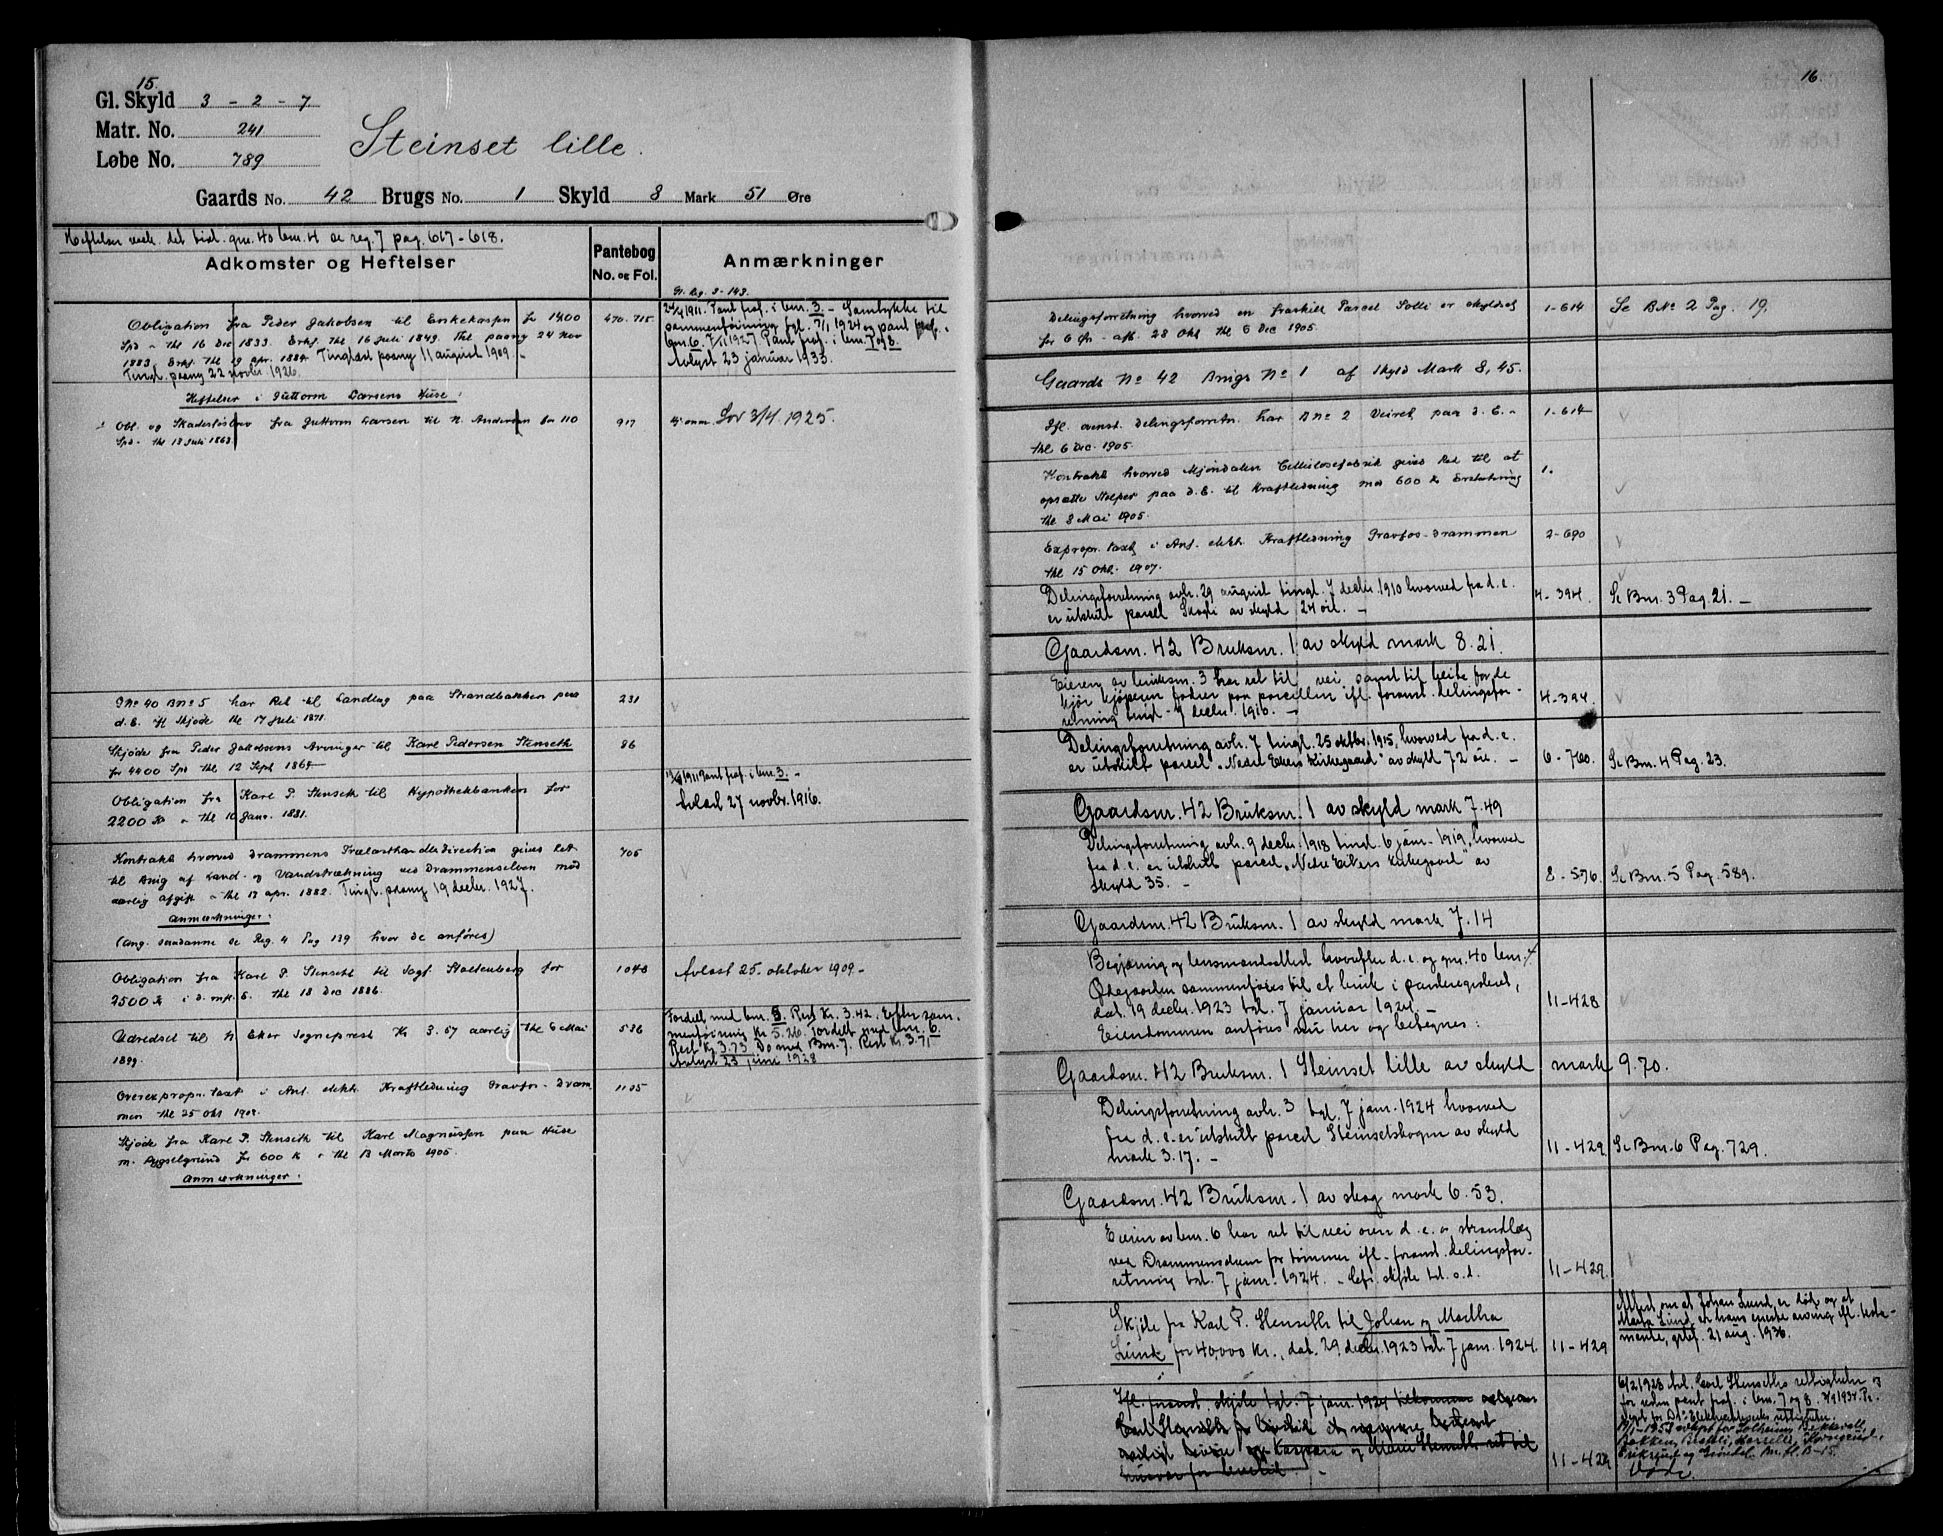 15.
Gl. Skyld 3 - 2 - 7
Matr. No. 241
Løbe No. 789
Steinset lille.
Gaards No. 42 Brugs No. 1 Skyld 8 Mark 51 Øre
Heftelser vedr. det tidl. gnr. 40 bnr. 4 se reg. 7 pag. 617-618.
Adkomster og Heftelser
Pantebog
No. og Fol.
Anmærkninger
Gl. Reg. 3-143
Obligation fra Peder Jakobsen til Enkekassen for 1400
Spd - thl 16 Dec 1833. Erkj. thl 16 Juli 1849. Thl paany 24 Nov
1883. Erkj. thl 19 apr. 1884. Tinglæst paany 11 august 1909. -
Tingl. paany 22 novbr. 1926.
470. 715
1911. Pant fraf. i bnr. 3. - Samtykke til
sammenføining tgl. 7/1 1924 og pant fraf. i
bnr. 6. 7/1 1927 Pant fraf. i bnr. 7 og 8.
Avlyst 23 januar 1933.
Heftelser i Guttorm Larsens Huse:
Obl. og Skadesløsbrev fra Guttorm Larsen til N. Andersen for 110
Spd. thl 13 Juli 1863
917
Lov 3/4 1925.
GNo 40 BNo 5 har Ret til Landlag paa Strandbakken paa
d. E. ifl Skjøde thl 17 Juli 1871.
231
Skjøde fra Peder Jakobsens Arvinger til Karl Pedersen Stenseth
for 4400 Spd thl 12 Sept 1864
86
Obligation fra Karl P. Stenseth til Hypothekbanken for
2200 Kr - thl 10 Janr. 1881.
1911 Pant fraf. i bnr. 3. -
Avlæst 27 novbr. 1916.
Kontrakt hvorved Drammens Trælasthandlerdirection gives Ret
til Brug af Land- og Vandstrækning ved Drammenselven mod
aarlig afgift - thl 13 apr. 1882. Tingl. paany 19 decbr. 1927.
705
Anmærkninger:
(Ang. saadanne se Reg. 4 Pag 139 hvor de anføres)
Obligation fra Karl P. Stenseth til Sagf. Stoltenberg for
2500 Kr i d. mk. 5. thl 18 Dec 1886.
1048
Avlæst 25. oktober 1909. -
Udredsel til N Eker Sogneprest Kr 3.57 aarlig thl 6 Mai
1899.
536
Fordelt med bnr. 5. Rest Kr. 3.42. Efter sam-
menføining Kr 5.26. Fordelt med bnr. 6.
Rest Kr. 3.73 Do med Bnr. 7. Rest Kr. 3.71
Avlyst 23 juni 1928
Overexpropr. taxt i Anl. elekt. Kraftledning Gravfos - Dram
men thl 25 Okt 1902.
1105
Skjøde fra Karl P. Stenseth til Karl Magnussen paa Huse
m. Bygselgrund for 600 Kr - thl 13 Marts 1905.
Anmærkninger:
16
Delingsforretning hvorved en fraskilt Parcel Solli er skyldsat
for 6 Øre - afh. 28 Okt thl 6 Dec 1905.
1-614
Se BNo 2 Pag. 19.
Gaards No 42 Brugs No 1 af Skyld Mark 8,45.
Ifl. ovenst. Delingsforretn. har BNo 2 Veiret paa d. E. -
thl 6 Dec. 1905.
1-614
Kontrakt hvorved Mjøndalen Cellulosefabrik gives Ret til at
opsætte Stolper paa d. E. til Kraftledning mod 600 Kr Erstatning
thl 8 Mai 1905.
1.
Expropr. taxt i Anl. elekt. Kraftledning Gravfos - Drammen
thl 15 Okt. 1907.
2-690
Delingsforretning avh. 29 august tingl. 7 decbr. 1910 hvorved fra d. e.
er utskilt parcel Skogli av skyld 24 øre. -
4-394.
Se Bnr. 3 Pag. 21. -
Gaardsnr. 42 Bruksnr. 1 av skyld mark 8.21.
Eieren av bruksnr. 3 har ret til vei samt til beite for de
kjør kjøperen føder paa parcellen ifl. foranst. delingsfor-
retning tingl. 7 decbr. 1910. -
4-394.
Delingsforretning avh. 7 tingl. 25 oktbr. 1915, hvorved fra d. e.
er utskilt parcel "Nedre Ekers Kirkegaard" av skyld 72 øre. -
6-760.
Se Bnr. 4 Pag. 23.
Gaardsnr. 42 Bruksnr. 1 av skyld mark 7.49
Delingsforretning avh. 9 decbr. 1918 tingl. 6 jan. 1919, hvorved
fra d. e. er utskilt parcel "Nedre Eikers kirkegaard" av
skyld 35. -
8-596.
Se Bnr. 5 Pag. 589.
Gaardsnr. 42 Bruksnr. 1 av skyld mark 7.14
Begjæring og lensmandsattest hvorefter d. e. og gnr. 40 bnr. 4
Ødegaarden sammenføres til et bruk i panteregisteret,
dat. 19 decbr. 1923 tgl. 7 januar 1924. -
Eiendommen anføres nu her og betegnes:
11-428
Gaardsnr. 42 Bruksnr. 1 Steinset lille av skyld mark 9.70.
Delingsforretning avh. 3 tgl. 7 jan. 1924 hvorved
fra d. e. er utskilt parcel Steinsetskogen av skyld
mark 3.17. -
11-429
Se Bnr. 6 Pag. 729.
Gaardsnr. 42 Bruksnr. 1 av skog mark 6.53.
Eieren av bnr. 6 har ret til vei over d. e. og strandlæg
ved Drammenselven for tømmer ifl. foranst. delingsfor-
retning tgl. 7 jan. 1924. - Cfr. skjøte tgl. s. d.
11-429.
Skjøte fra Karl P. Stenseth til Johan og Martha
Lund for 40,000 kr., dat. 29 decbr. 1923 tgl. 7 jan. 1924.
11-429
Attest om at Johan Lund er død og at
Marta Lund er hans eneste arving ifl. testa-
mente, grlst. 21 aug. 1936.
Ifl. foranst. skjøte tgl. 7 jan. 1924 tilkommer
Carl Stenseth
og Kaspara og Marie Stenseth ret til
husvær for levetid. -
11-429
6/2 1928 tgl. Carl Stenseths rettigheter
for veden pant fraf. i bnr. 7 og 8.